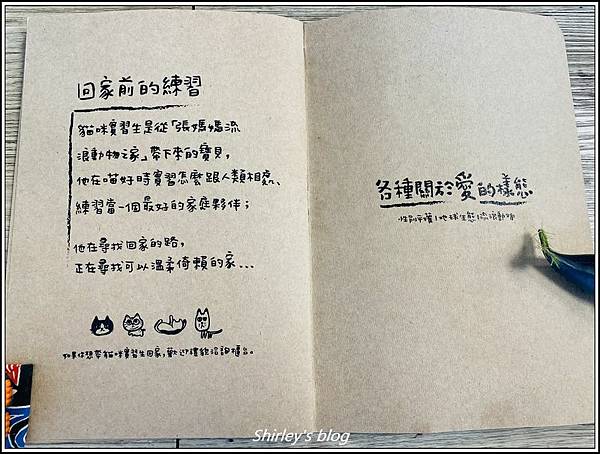 回家前的練習
貓咪實習生是從「張媽媽流
浪動物之家」帶下來的寶貝，
他在喵好時實習怎麼跟人類相處、
練習當一個最好的家庭夥伴；
他在尋找回家的路，
正在尋找可以溫柔倚賴的家...
如果你想帶貓咪實習生回家，歡迎禮貌洽詢櫃台。
各種關於愛的樣態
性別平權｜地球生態｜流浪動物
Shirley's blog